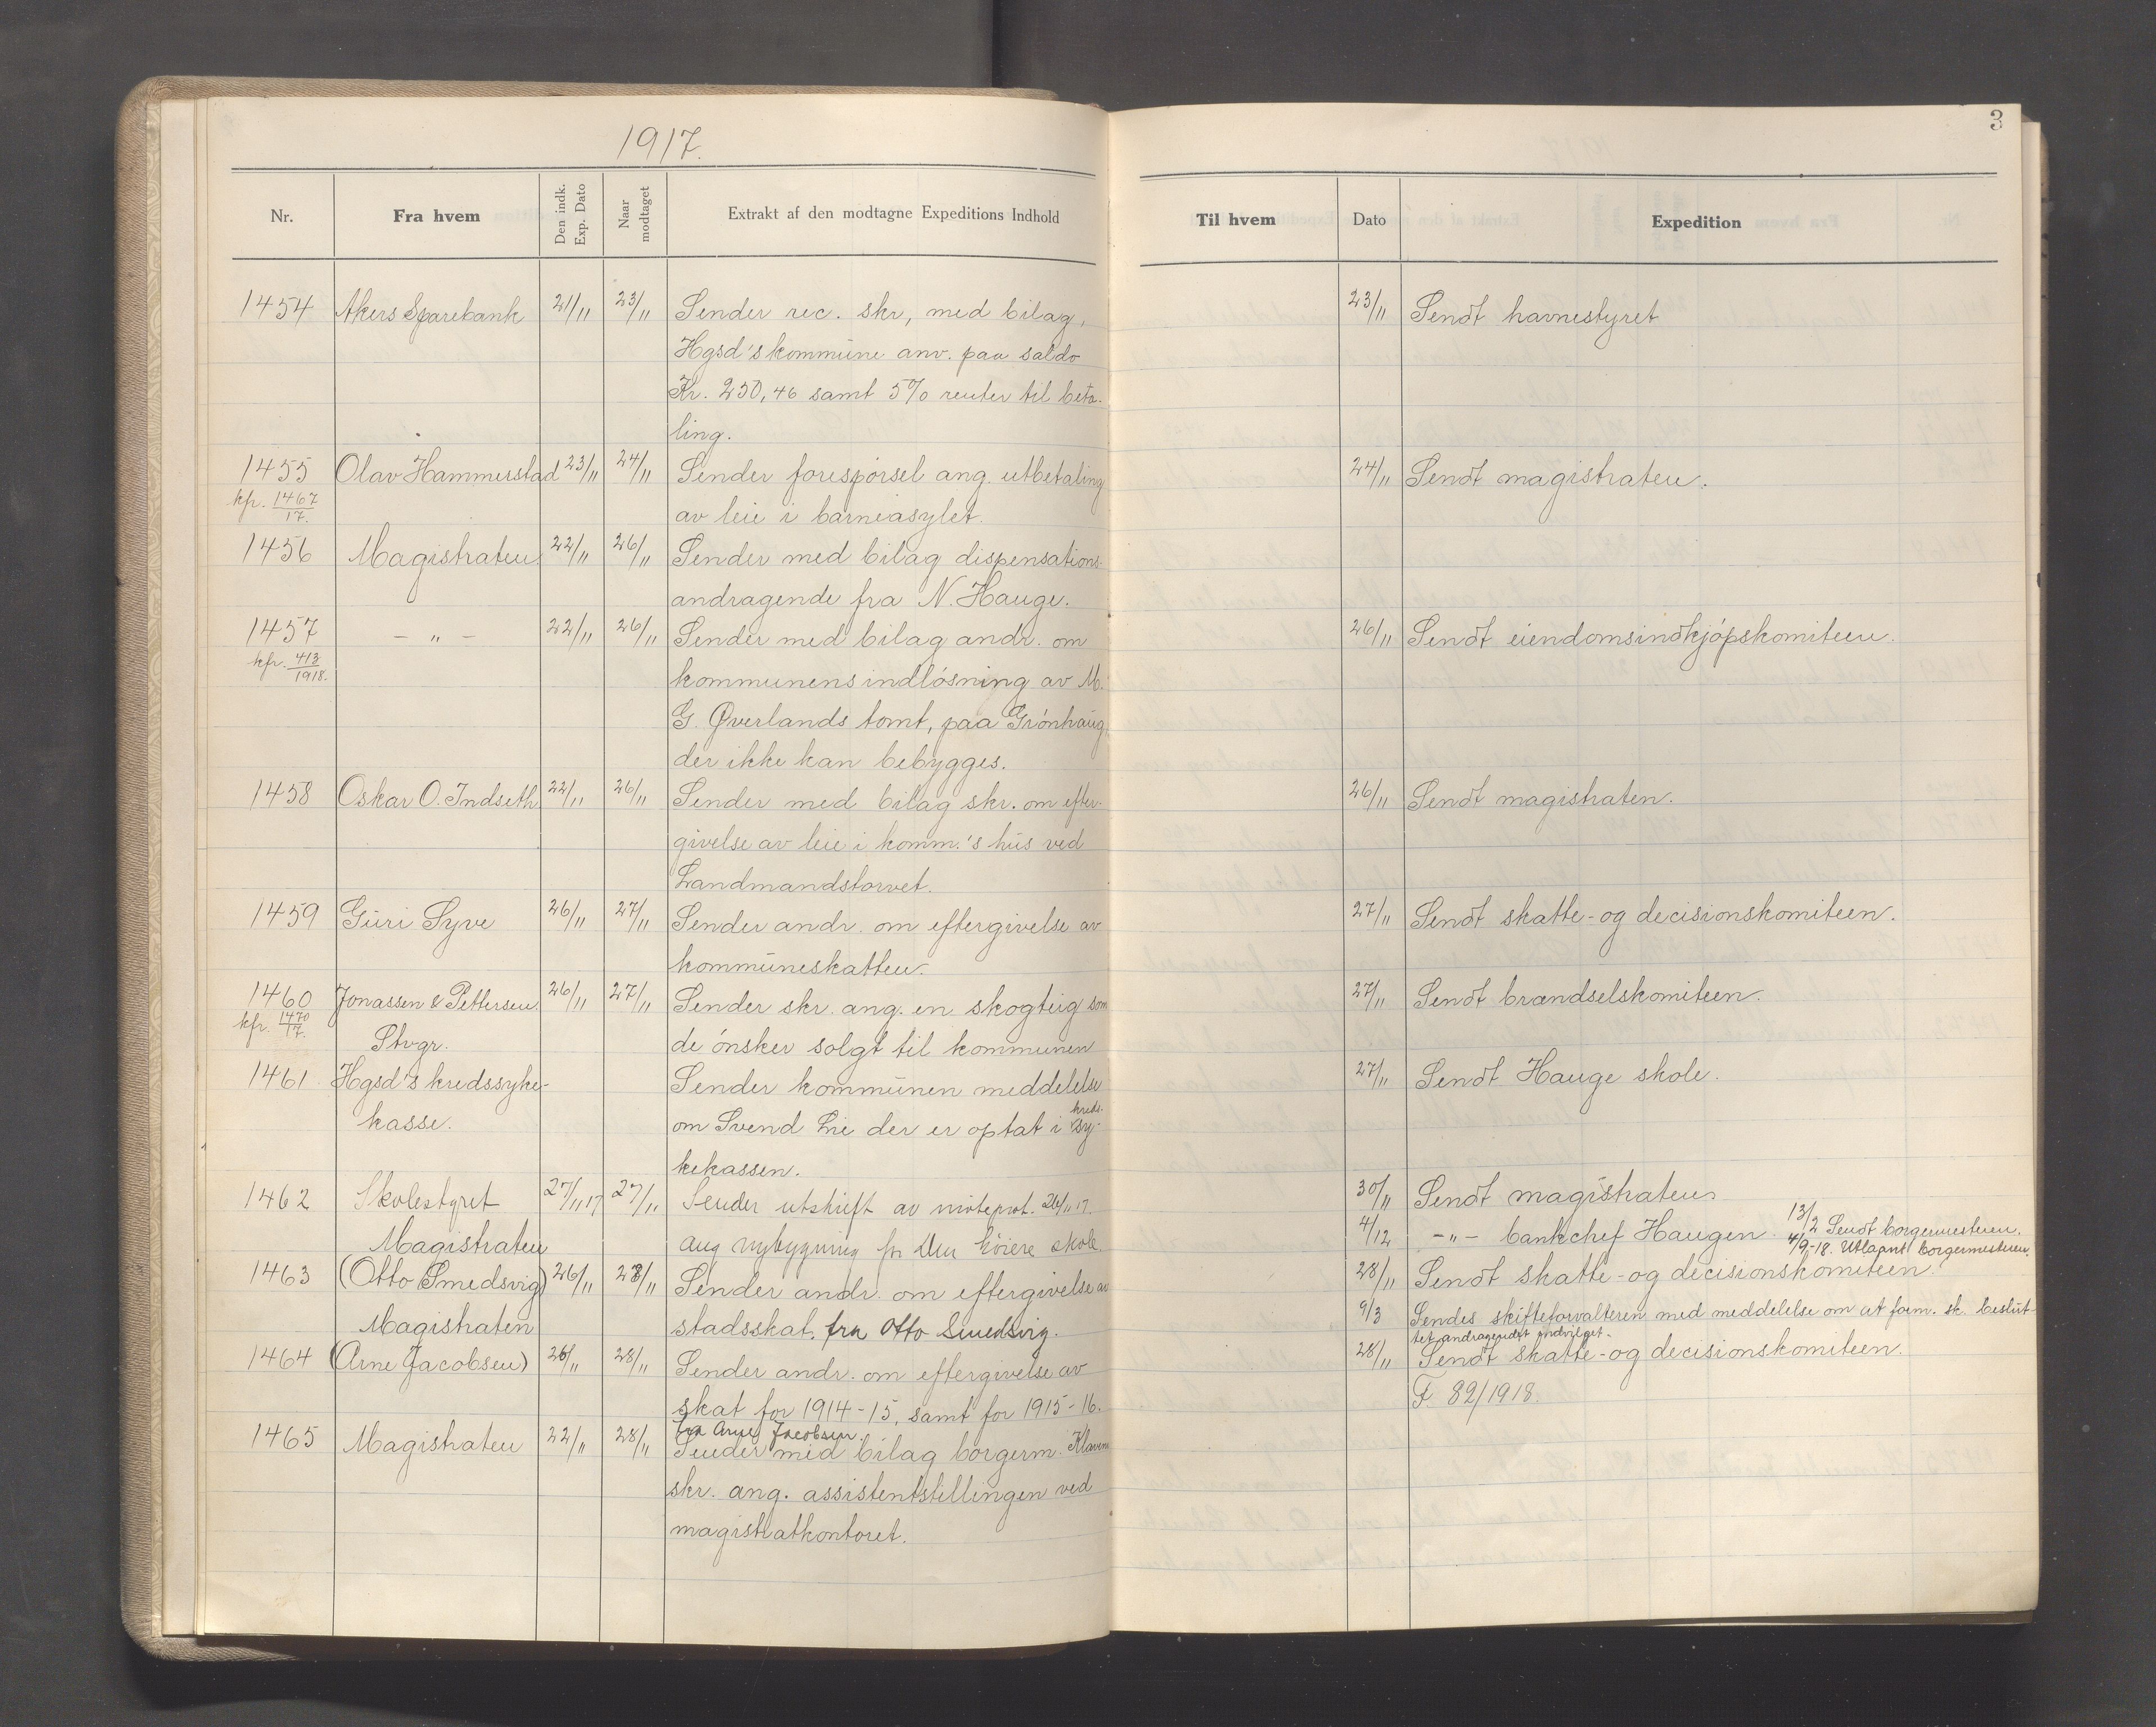 1917.
3
Nr.
Fra hvem
Den indk. Exp. Dato
Naar modtaget
Extrakt af den modtagne Expeditions Indhold
Til hvem
Dato
Expedition
1454 Akers Sparebank 21/11 23/11 Sender rec. skr, med bilag, 23/11 Sendt havnestyret
Hgsd's kommune anv. paa saldo
Kr. 250,46 samt 5% renter til beta-
ling.
1455 Olav Hammerstad 23/11 24/11 Sender forespørsel ang. utbetaling 24/11 Sendt magistraten.
kfr. 1467/17. av leie i barneasylet.
1456 Magistraten 22/11 26/11 Sender med bilag dispensations-
andragende fra N. Hauge.
1457 – " – 22/11 26/11 Sender med bilag andr. om 26/11 Sendt eiendomsindkjøpskomiteen.
kfr. 413/1918. kommunens indløsning av M.
G. Øverlands tomt, paa Grønhaug,
der ikke kan bebygges.
1458 Oskar O. Indseth 22/11 26/11 Sender med bilag skr. om efter- 26/11 Sendt magistraten.
givelse av leie i komm.'s hus ved
Landmandstorvet.
1459 Guri Syve 26/11 27/11 Sender andr. om eftergivelse av 27/11 Sendt skatte- og decisionskomiteen.
kommuneskatten.
1460 Jonassen & Pettersen. 26/11 27/11 Sender skr. ang. en skogteig som 27/11 Sendt brændselskomiteen.
kfr. 1470/17. Stvgr. de ønsker solgt til kommunen
1461 Hgsd's kredssyke- Sender kommunen meddelelse 27/11 Sendt Hauge skole.
kasse. om Svend Lie der er optat i kreds-sy-
kekassen.
1462 Skolestyret 27/11 17 27/11 Sender utskrift av møteprot. 26/11 17. 30/11 Sendt magistraten
ang nybygning for den høiere skole. 4/12 – " – bankchef Haugen. 13/2 Sendt borgermesteren.
4/9-18. Utlaant borgermesteren.
Magistraten
1463 (Otto Smedsvig) 26/11 28/11 Sender andr. om eftergivelse av 28/11 Sendt skatte- og decisionskomiteen.
stadsskat, fra Otto Smedsvig. 9/3 Sendes skifteforvalteren med meddelelse om at form. sk. beslut-
tet andragendet indvilget.
Magistraten
1464 (Arne Jacobsen) 26/11 28/11 Sender andr. om eftergivelse av 28/11 Sendt skatte- og decisionskomiteen.
skat for 1914-15, samt for 1915-16. F 82/1918.
fra Arne Jacobsen.
1465 Magistraten 22/11 28/11 Sender med bilag borgerm. Klavens
skr. ang. assistentstillingen ved
magistratkontoret.